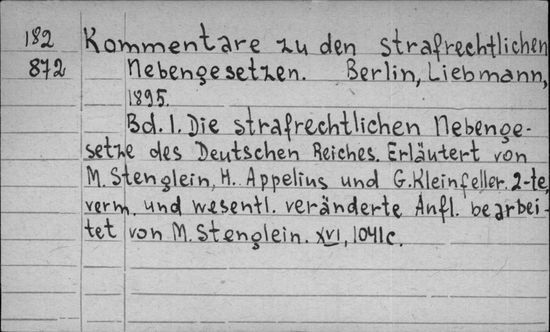 182 Kommentare zu den strafrechtlichen
872 Nebengesetzen. Berlin, Liebmann,
1895.
Bd. 1. Die strafrechtlichen Nebenge-
setze des Deutschen Reiches. Erläutert von
M. Stenglein, H. Appelius und G. Kleinfeller. 2-te,
verm. und wesentl. veränderte Anfl. bearbei-
tet von M. Stenglein. XVI, 1041c.